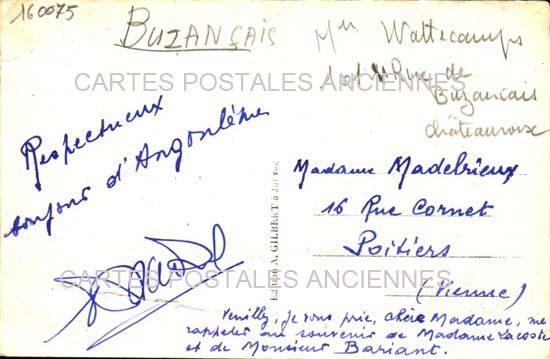 160075
BUZANÇAIS
Mlle Wattecamps
Rue de
Buzancais
châteauroux
CARTES POSTALES ANCIENNES
Respectueux
bonjour d'Angoulême
Madame Madebrieux
16 Rue Cornet
Poitiers
(Vienne)
Edition A. GILBERT à
CARTES POSTALES ANCIENNES
Veuillez, je vous prie, chère Madame, me
rappeler au souvenir de Madame Lacoste
et de Monsieur Bariant.